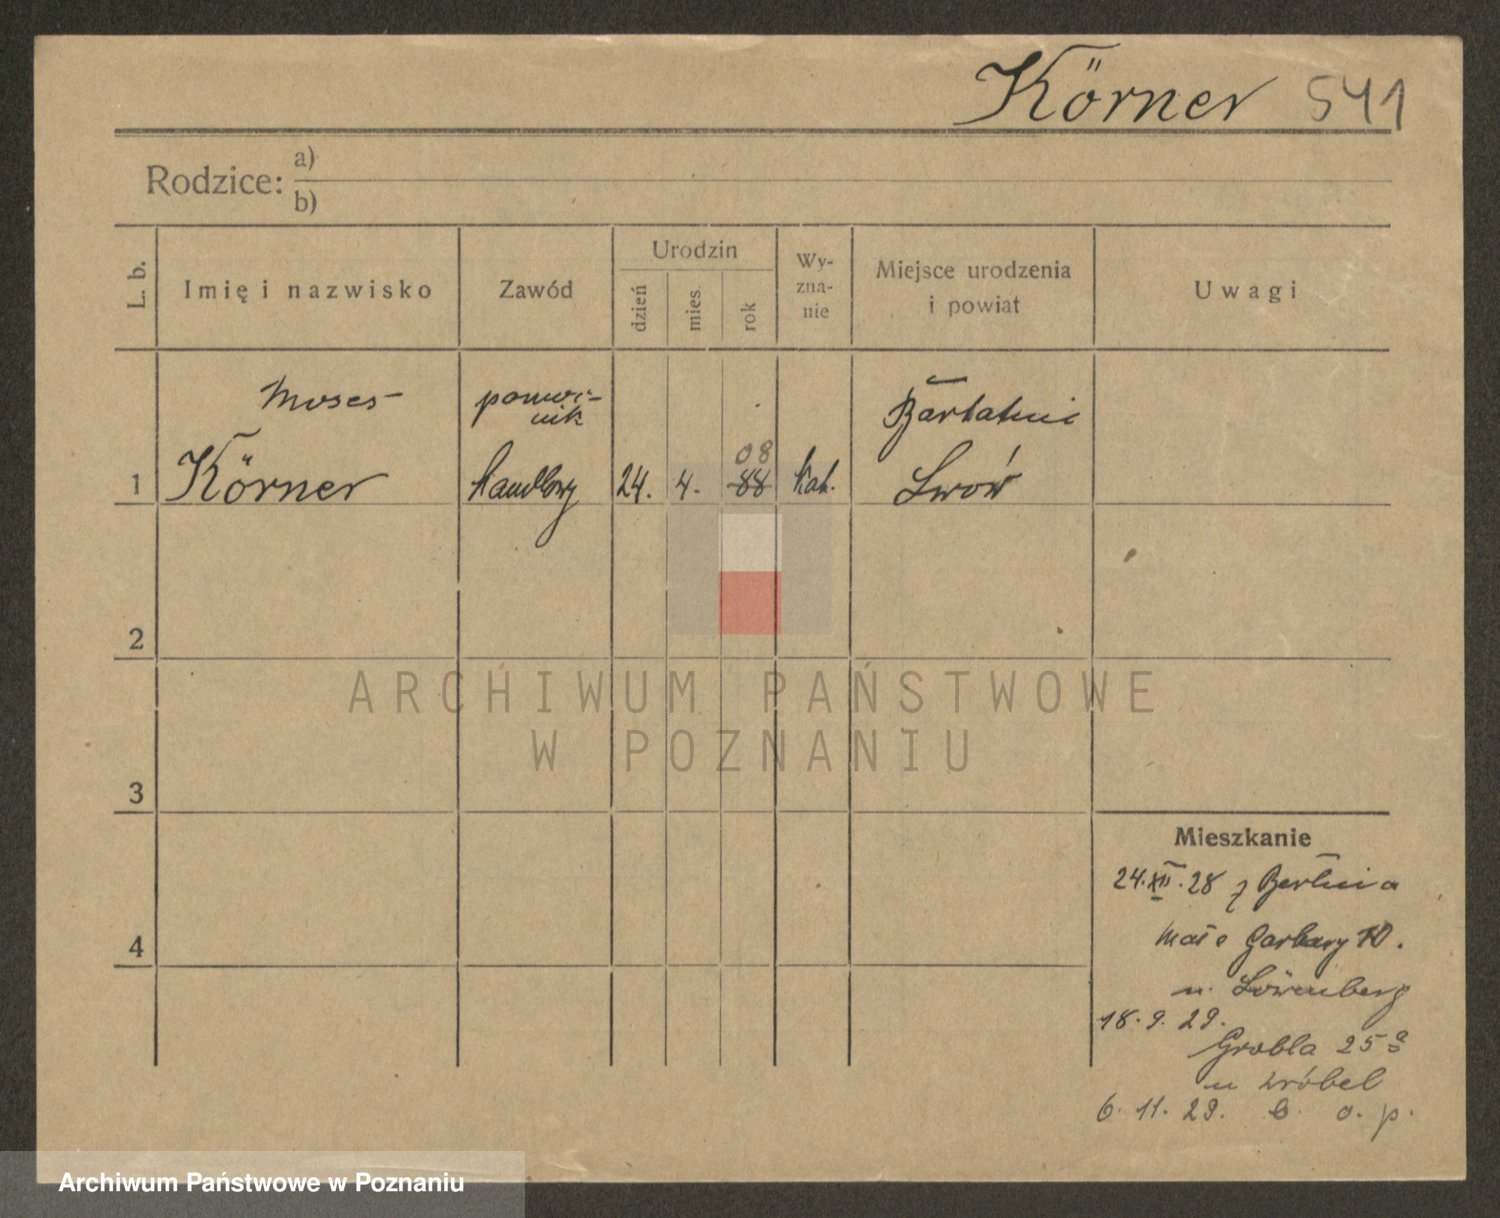 Körner 541
Rodzice: a)
b)
L. b.
Imię i nazwisko
Zawód
Urodzin
dzień
mies.
rok
Wy-
zna-
nie
Miejsce urodzenia
i powiat
Uwagi
Moses
Körner
pomoc-
nik
handlowy
24. 4. 88
08
kat.
Lwów
1
2
3
4
Mieszkanie
24.XII.28 z Berlina
Małe Garbary 10.
u. Löwenberg
18. 9. 29.
Grobla 25a
u Wróbel
6. 11. 29. b. o. p.
ARCHIWUM PAŃSTWOWE
W POZNANIU
Archiwum Państwowe w Poznaniu